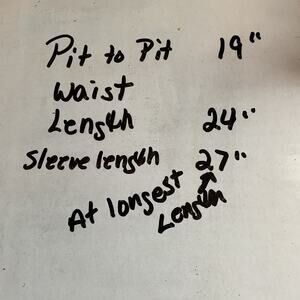 Pit to Pit 19"
Waist
Length 24"
Sleeve length 27"
At longest
Length